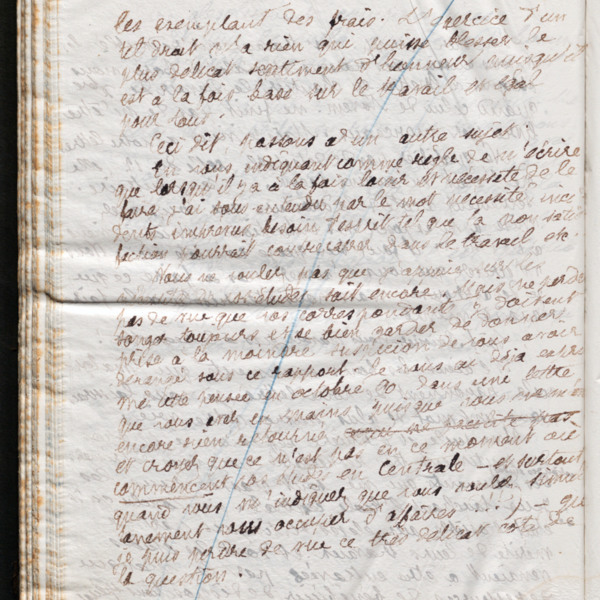 les exemptant des frais. L'exercice d'un
tel droit n'a rien qui puisse blesser le
plus délicat sentiment d'honneur puisqu'il
est à la fois basé sur le travail et égal
pour tous.
Ceci dit passons à un autre sujet.
En vous indiquant comme règle de m'écrire
que lorsqu'il y a à la fois loisir et nécessité de le
faire, j'ai sous-entendu par le mot nécessité
imprévus, besoin d'esprit tel que la non satis
faction pourrait dans le travail etc.
Vous ne voulez pas que
soit encore. Mais ne perdez
pas de vue que nos correspondants doivent
songer toujours et se bien garder de donner
prise à la moindre suspicion de nous avoir
dérangé sous ce rapport. Je vous ai déjà
ma pensée en octobre 90 dans une lettre
que vous avez en mains puisque vous ne m'
encore rien retourné
et croyez que ce n'est pas en ce moment où
commencent nos en Centrale - et surtout
quand vous m'indiquez que vous voulez
vous occuper d'affaires !!! ) - que
je puis perdre de vue ce très délicat côté de
la question.